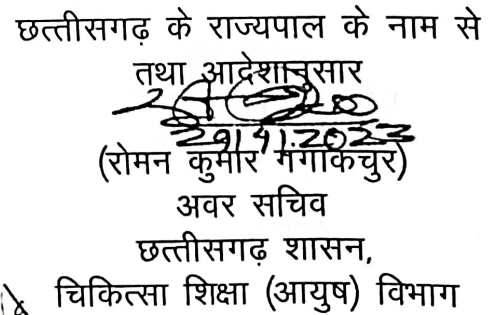 छत्तीसगढ़ के राज्यपाल के नाम से
तथा आदेशानुसार
29/11.2023
(रोमन कुमार गंगाकचुर)
अवर सचिव
छत्तीसगढ़ शासन,
चिकित्सा शिक्षा (आयुष) विभाग